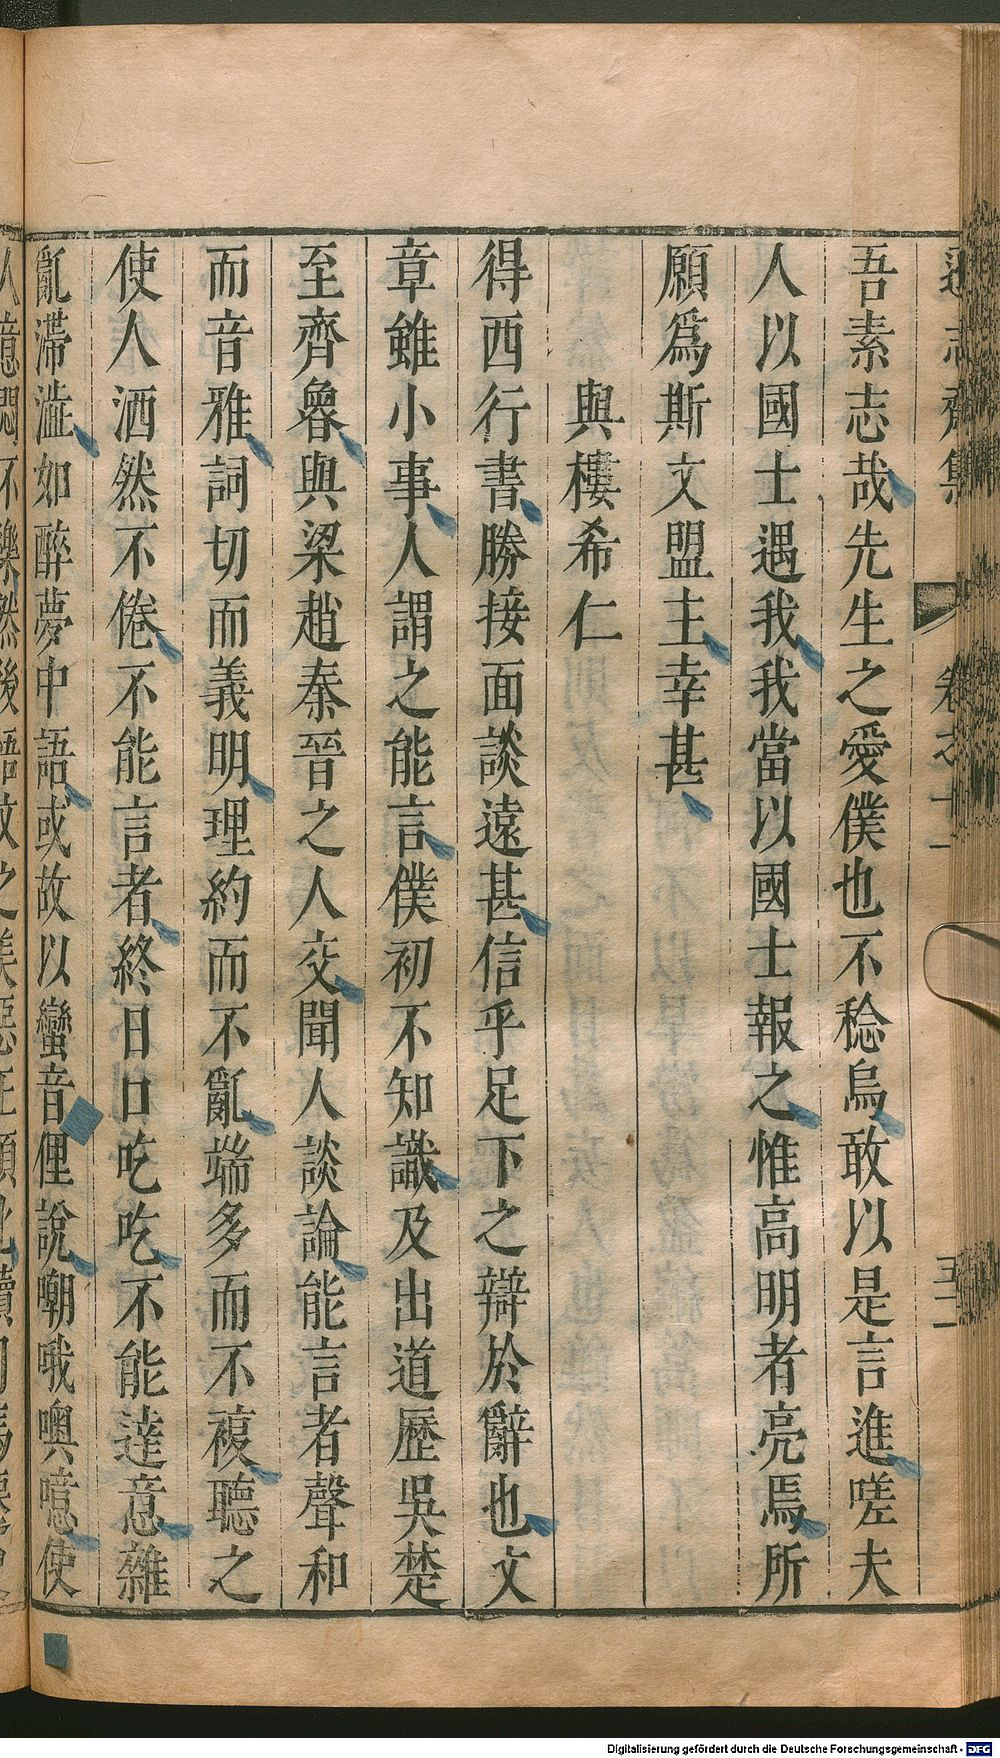 遜志齋集 卷之十一 五十一
吾素志哉先生之愛僕也不稔烏敢以是言進嗟夫
人以國士遇我我當以國士報之惟高明者亮焉所
願爲斯文盟主幸甚
與樓希仁
得西行書勝接面談遠甚信乎足下之辯於辭也文
章雖小事人謂之能言僕初不知識及出道歷吳楚
至齊魯與梁趙秦晉之人交聞人談論能言者聲和
而音雅詞切而義明理約而不亂端多而不複聽之
使人洒然不倦不能言者終日口吃吃不能達意雜
亂滯澁如醉夢中語或故以蠻音俚說嘲哦噢噫使
Digitalisierung gefördert durch die Deutsche Forschungsgemeinschaft - DFG